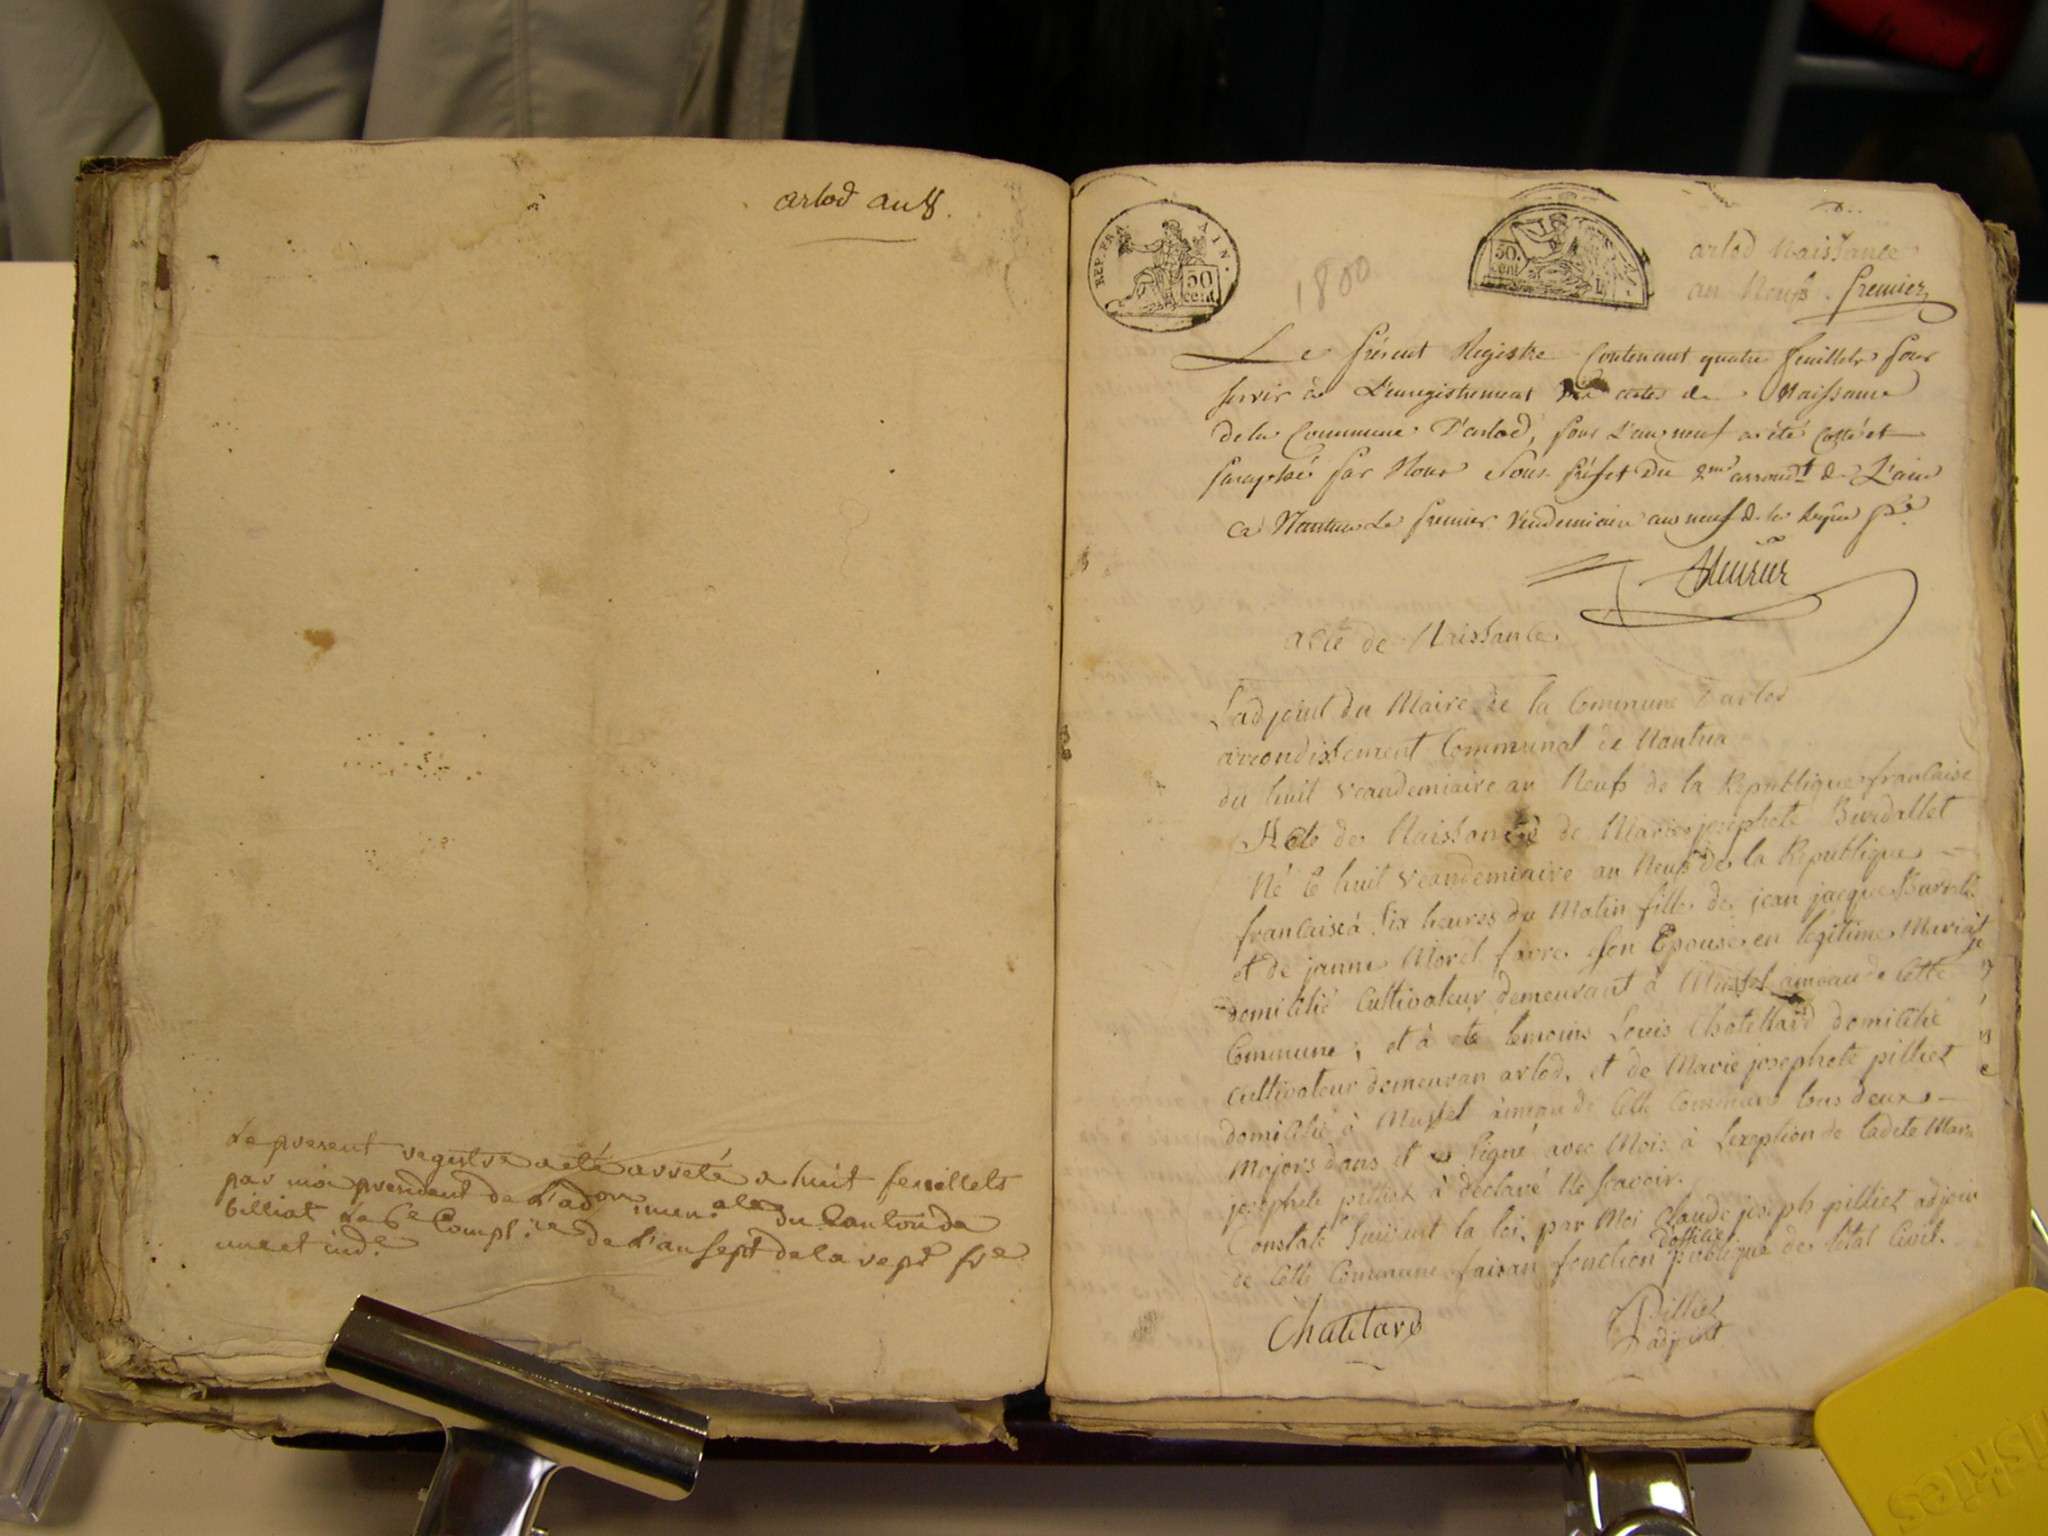 arlod an 8.
Le present registre a eté arreté a huit feuillets
par moi president de L'adon. mun.ale du Canton de
billiat le 6e Compl.re de L'an sept de la repe fse
une et ind.e
REP. FRA AIN.
50
cent.
1800
50.
cent
arlod Naissance
an Neufs. premier
Le présent Registre Contenant quatre feuillets pour
servir à L'enregistrement des actes de Naissance
de la Commune D'arlod, pour L'an neuf a été Cotté et
paraphé par Nous Sous-préfet Du 2me arrondt de L'ain
a Nantua Le premier Vendemiaire an neuf de la
acte de Naissance
Ladjoint du Maire de la Commune Darlod
arrondissement Communal de Nantua
du huit veandemiaire an Neufs de la Republique francaise
Acte de Naissance de Marie josephete Burdallet
Né le huit veandemiaire an Neufs de la Republique
francaise à six heures du Matin fille de jean jacque
et de janne Morel favre son Epouse en legitime Mariaje
domicilié Cultivateur demeurant à Mussel amau de Cette
Commune; et à eté temoins Louis Chatillard domicilié
Cultivateur demeuran arlod, et de Marie josephete pilliet
domicilié à Mussel amau de Cette Commune tous deux
Majors dans et signé avec Moi à Lexeption de Ladete Marie
josephete pilliet à declaré Ne savoir.
Constaté suivant la loi, par Moi Claude joseph pilliet adjoin
dofficié
de Cette Commune faisan fonction publique de letat Civil.
Chatilard
Pilliet
adjoint